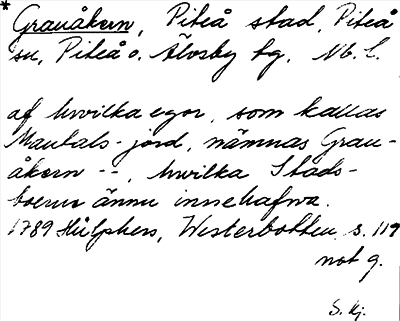 * Grauåkern, Piteå stad, Piteå
sn, Piteå o. Älvsby tg, Nb. l.
af hwilka egor, som kallas
Mantals-jord, nämnas Grau-
åkern --, hwilka Stads-
boerne ännu innehafwa.
1789 Hülphers, Westerbotten, s. 119
not q.
S. Kj.